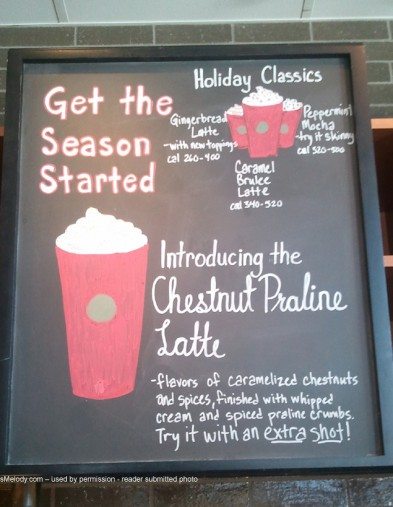 Get the
Season
Started
Holiday Classics
Gingerbread
Latte
-with new toppings
cal 260-400
Caramel
Brulee
Latte
cal 340-520
Peppermint
Mocha
-try it skinny
cal 320-500
Introducing the
Chestnut Praline
Latte
-flavors of caramelized chestnuts
and spices, finished with whipped
cream and spiced praline crumbs.
Try it with an extra shot!
sMelody.com – used by permission - reader submitted photo